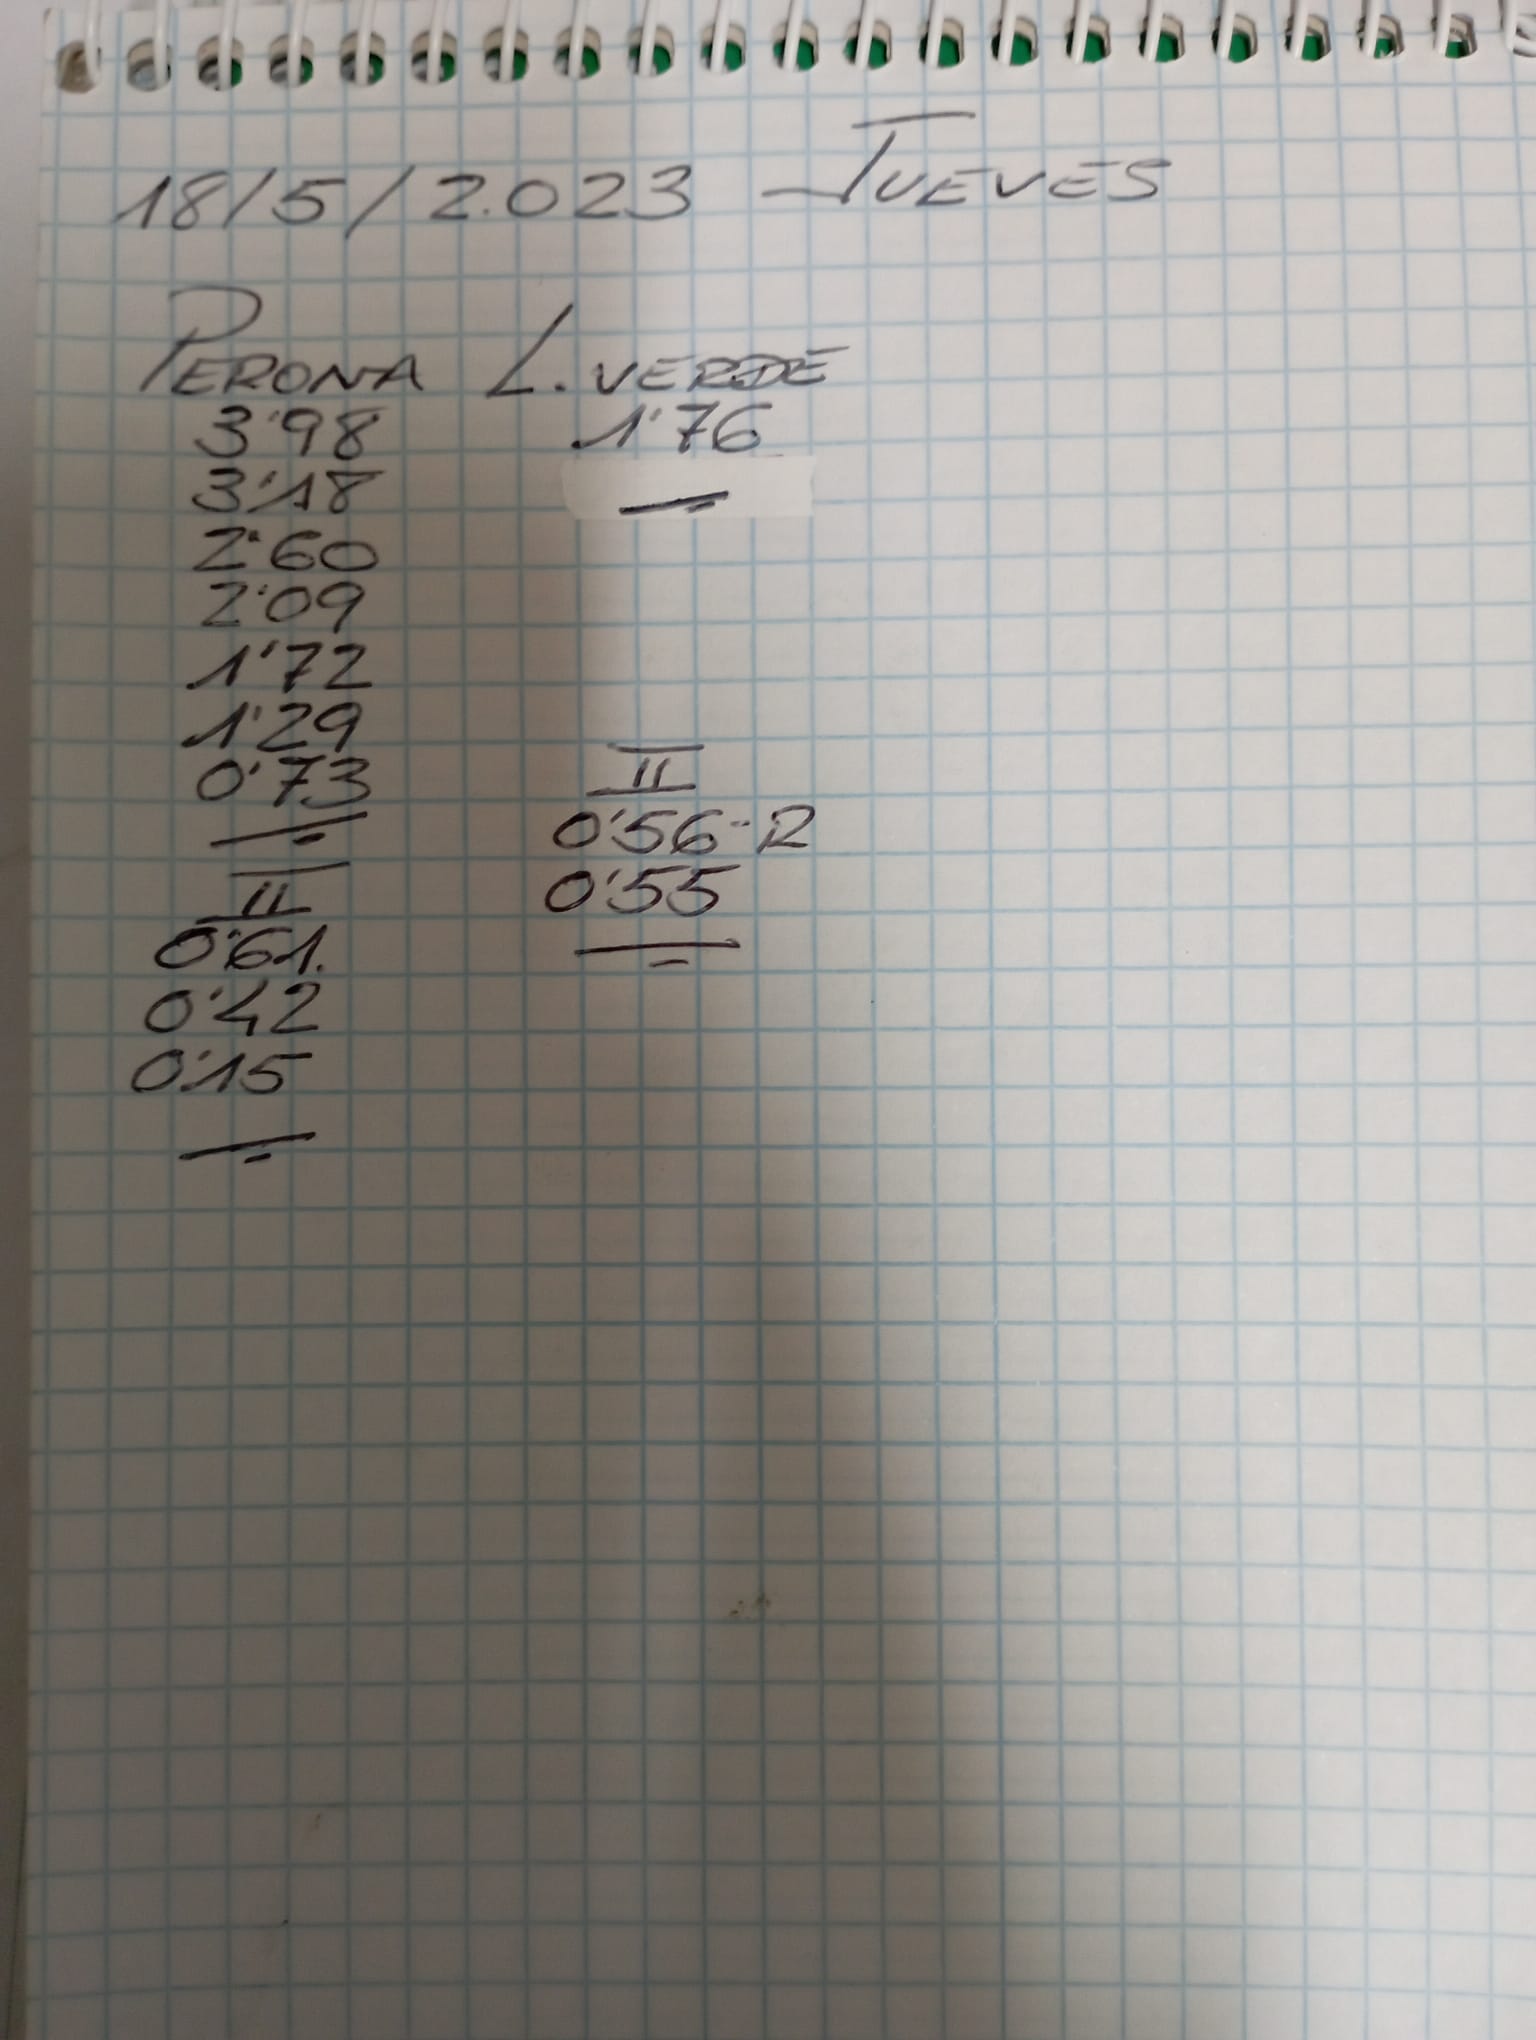 18/5/2.023 - JUEVES
PERONA
3'98
3'18
2'60
2'09
1'72
1'29
0'73
II
0'61.
0'42
0'15
L. VERDE
1'76
II
0'56-R
0'55